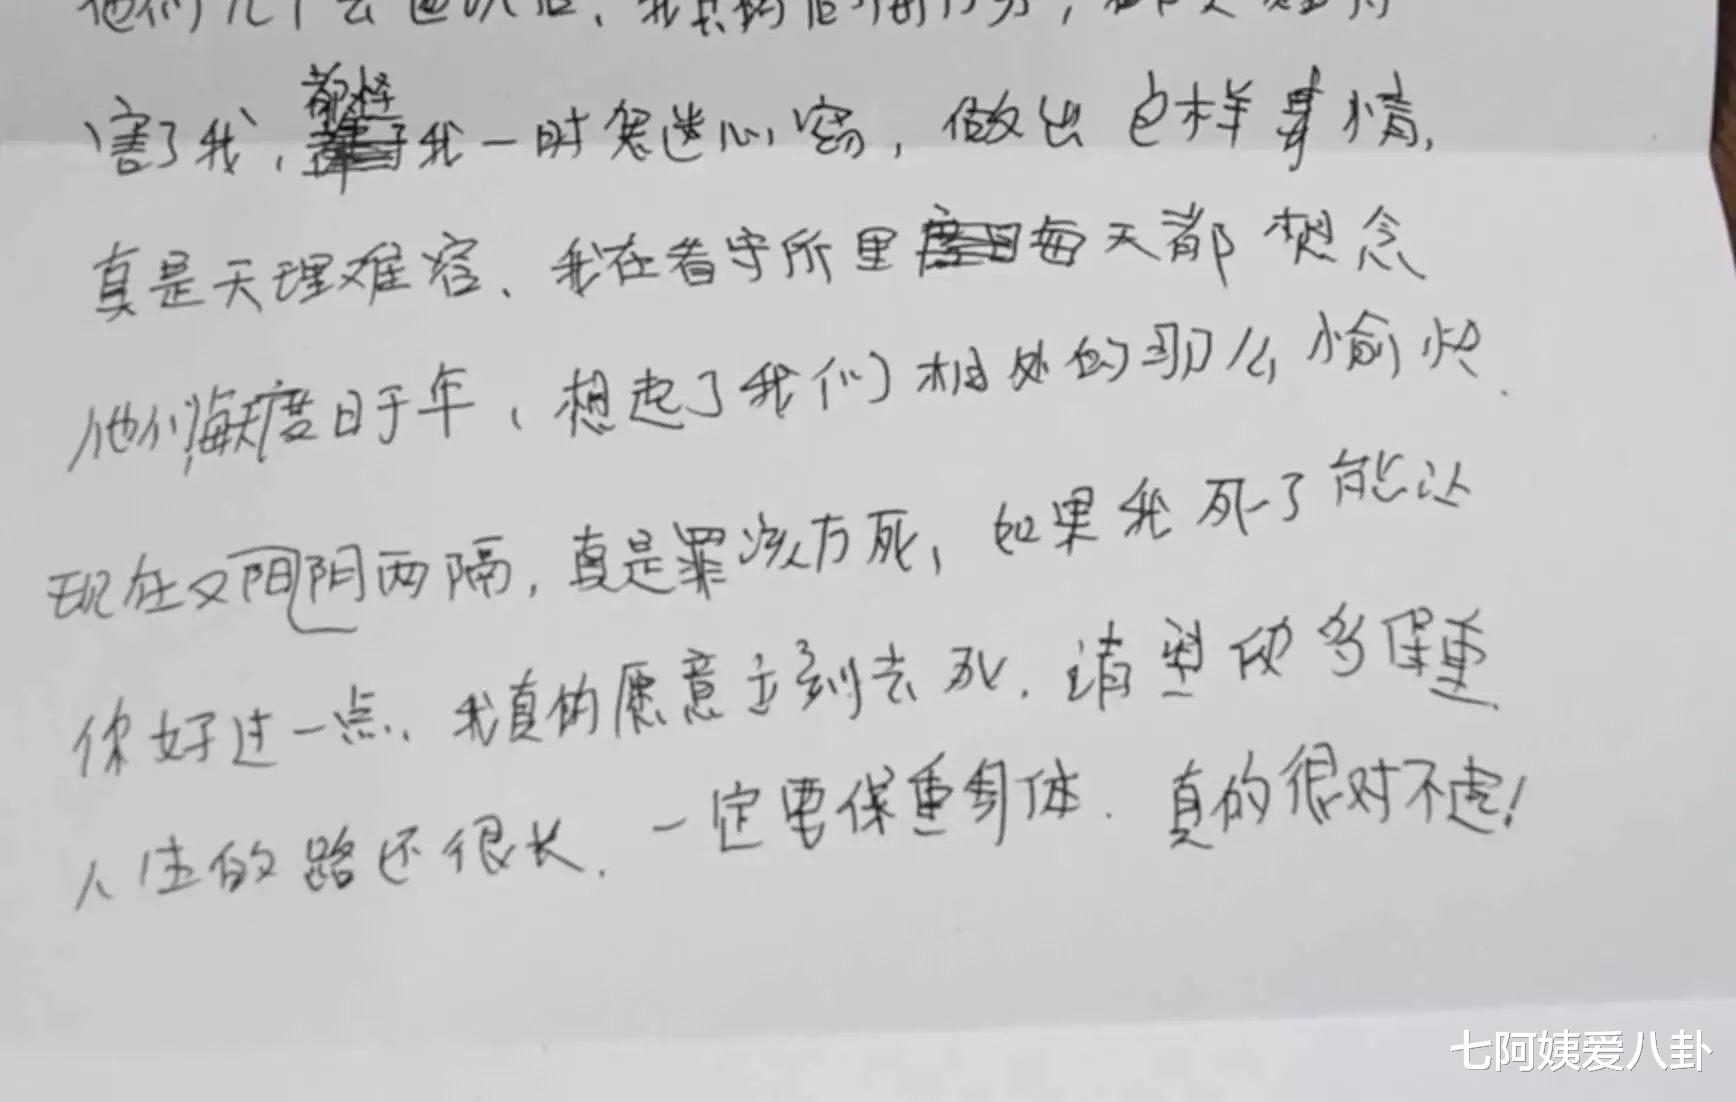 害了我，都怪我一时鬼迷心窍，做出这样事情，
真是天理难容、我在看守所里每天都想念
他们每天度日于年，想起了我们相处的那么愉快．
现在又阴阳两隔，真是罪该万死，如果我死了能让
你好过一点、我真的愿意立刻去死．请您多保重．
人生的路还很长．一定要保重身体．真的很对不起！
七阿姨爱八卦